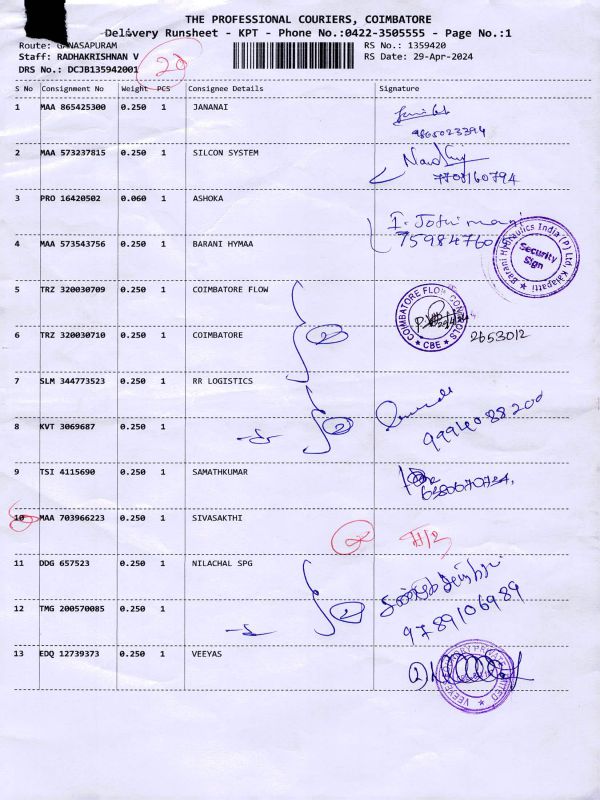 THE PROFESSIONAL COURIERS, COIMBATORE
Delivery Runsheet - KPT - Phone No.:0422-3505555 - Page No.:1
Route: GANASAPURAM
RS No.: 1359420
Staff: RADHAKRISHNAN V
RS Date: 29-Apr-2024
DRS No.: DCJB135942001
20
S No Consignment No Weight PCS Consignee Details Signature
1 MAA 865425300 0.250 1 JANANAI
9865023394
2 MAA 573237815 0.250 1 SILCON SYSTEM
7708160794
3 PRO 16420502 0.060 1 ASHOKA
I. Jothimani
4 MAA 573543756 0.250 1 BARANI HYMAA
Barani Hydraulics India (P) Ltd. Kalapatti
Security Sign
5 TRZ 320030709 0.250 1 COIMBATORE FLOW
COIMBATORE FLOW CONTROLS
CBE
6 TRZ 320030710 0.250 1 COIMBATORE
2
2653012
7 SLM 344773523 0.250 1 RR LOGISTICS
8 KVT 3069687 0.250 1
2
9994088200
9 TSI 4115690 0.250 1 SAMATHKUMAR
10 MAA 703966223 0.250 1 SIVASAKTHI
11 DDG 657523 0.250 1 NILACHAL SPG
12 TMG 200570085 0.250 1
2
9789106989
13 EDQ 12739373 0.250 1 VEEYAS